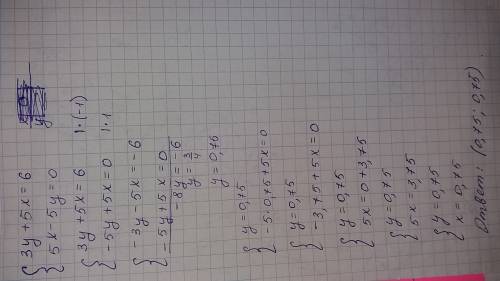 { 3y + 5x = 6
{ 5x - 5y = 0
{ 3y + 5x = 6 | · (-1)
{ -5y + 5x = 0 | · 1
{ -3y - 5x = -6
{ -5y + 5x = 0
-8y = -6
y = 3/4
y = 0,75
{ y = 0,75
{ -5 · 0,75 + 5x = 0
{ y = 0,75
{ -3,75 + 5x = 0
{ y = 0,75
{ 5x = 0 + 3,75
{ y = 0,75
{ 5x = 3,75
{ y = 0,75
{ x = 0,75
Ответ: (0,75; 0,75)